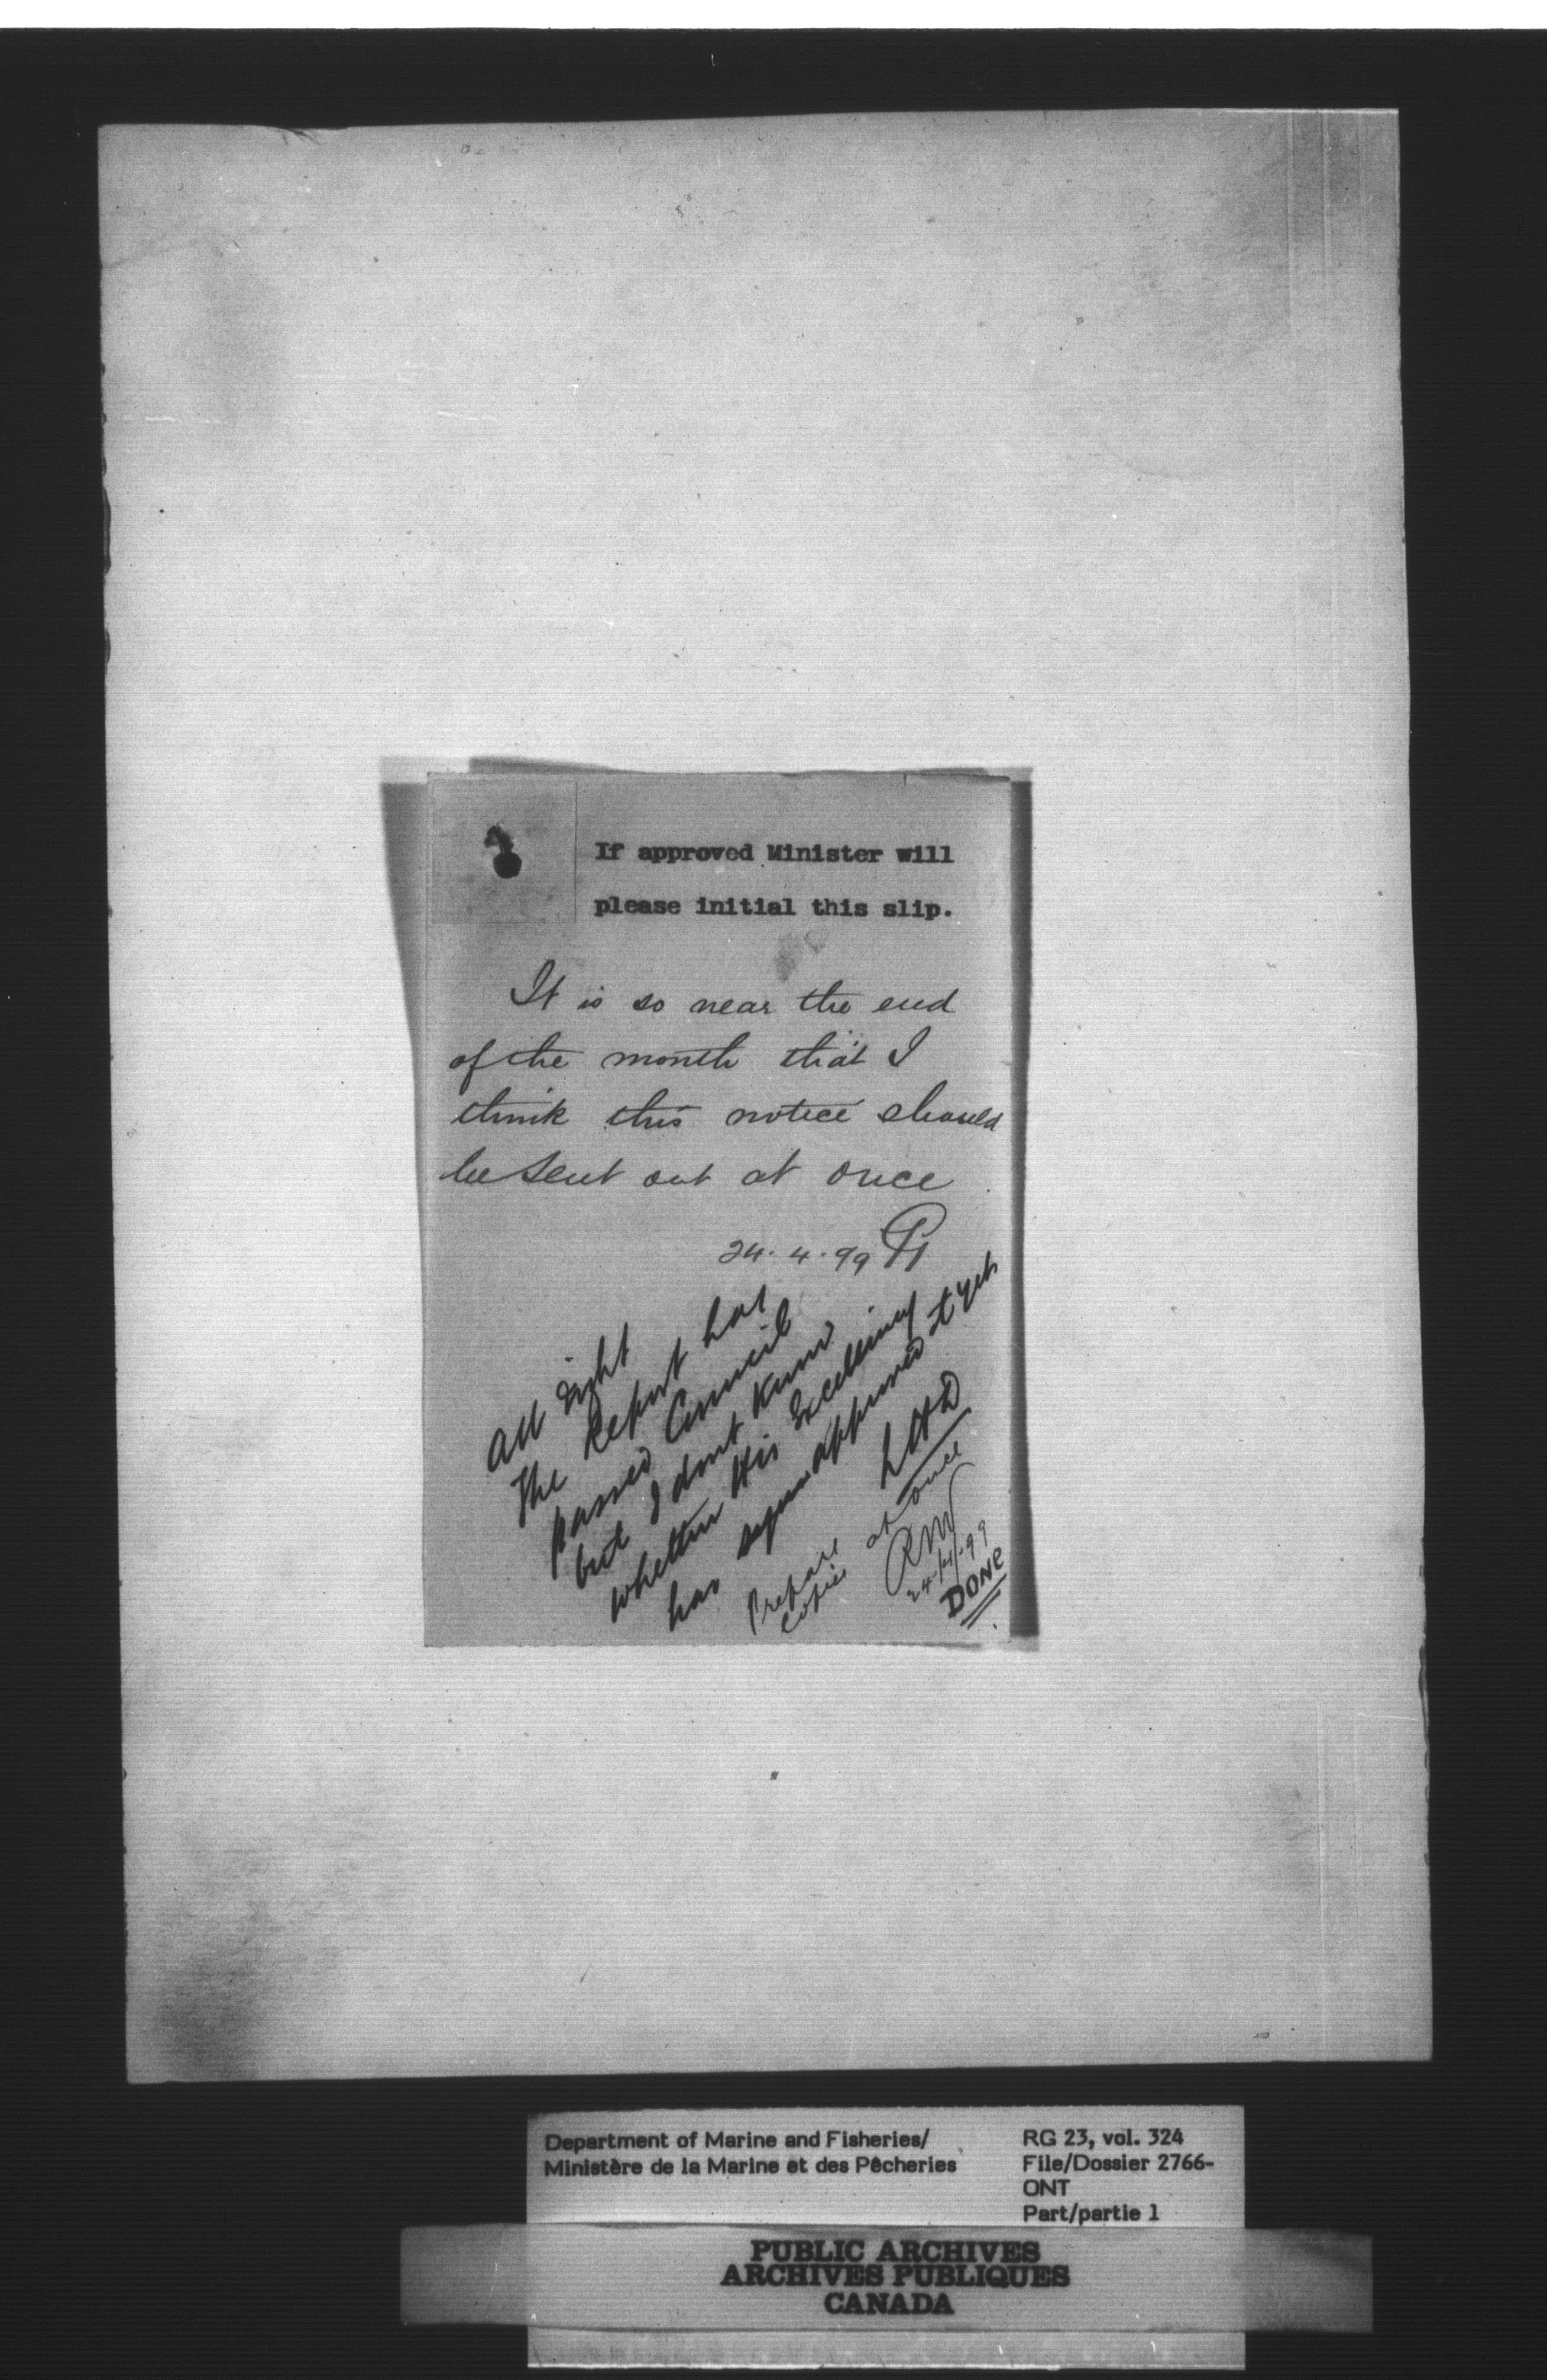 If approved Minister will
please initial this slip.
It is so near the end
of the month that I
think this notice should
be sent out at once
24.4.99
All right
The Report has
passed Council
but I dont know
whether His Excellency
has approved it yet
LHD
Prepare
copies at once
RW
24/4/99
DONE
Department of Marine and Fisheries/
Ministère de la Marine et des Pêcheries
RG 23, vol. 324
File/Dossier 2766-
ONT
Part/partie 1
PUBLIC ARCHIVES
ARCHIVES PUBLIQUES
CANADA